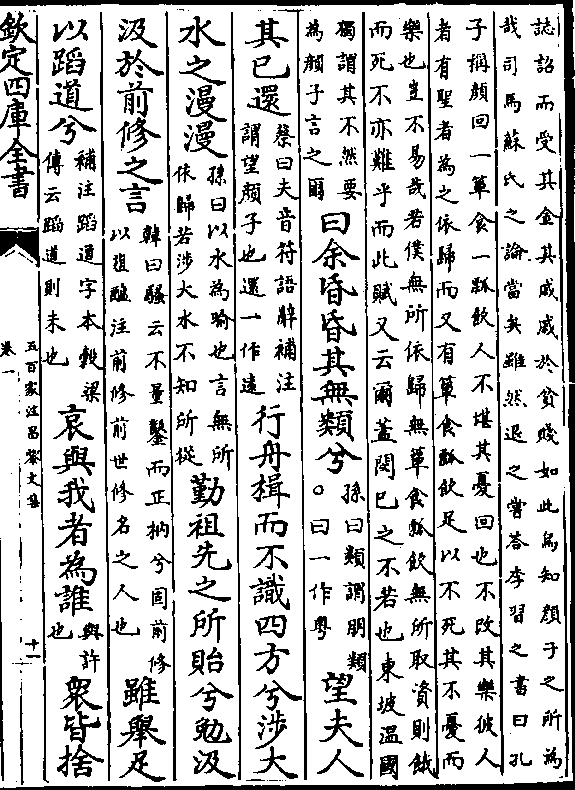 誌詒而受其金其戚戚於貧賤如此烏知顔子之所為
哉司馬蘇氏之論當矣雖然退之嘗荅李習之書曰孔
子稱顔回一簞食一瓢飲人不堪其憂回也不改其樂彼人
者有聖者為之依歸而又有簞食瓢飲足以不死其不憂而
樂也豈不易哉若僕無所依歸無簞食瓢飲無所取資則餓
而死不亦難乎而此賦又云爾蓋閔已之不若也東坡溫國
獨謂其不然要
為顔子言之爾
曰余昏昏其無類兮
孫曰類謂朋類
○曰一作粤
望夫人
其已還
蔡曰夫音符語辭補注
謂望顔子也還一作遠
行舟楫而不識四方兮涉大
水之漫漫
孫曰以水為喻也言無所
依歸若涉大水不知所從
勤祖先之所貽兮勉汲
汲於前修之言
韓曰騷云不量鑿而正枘兮固前修
以葅醢注前修前世修名之人也
雖舉足
以蹈道兮
補注蹈道字本榖梁
傳云蹈道則未也
哀與我者為誰
與許
也
衆皆捨
欽定四庫全書
五百家注昌黎文集
卷一
十一